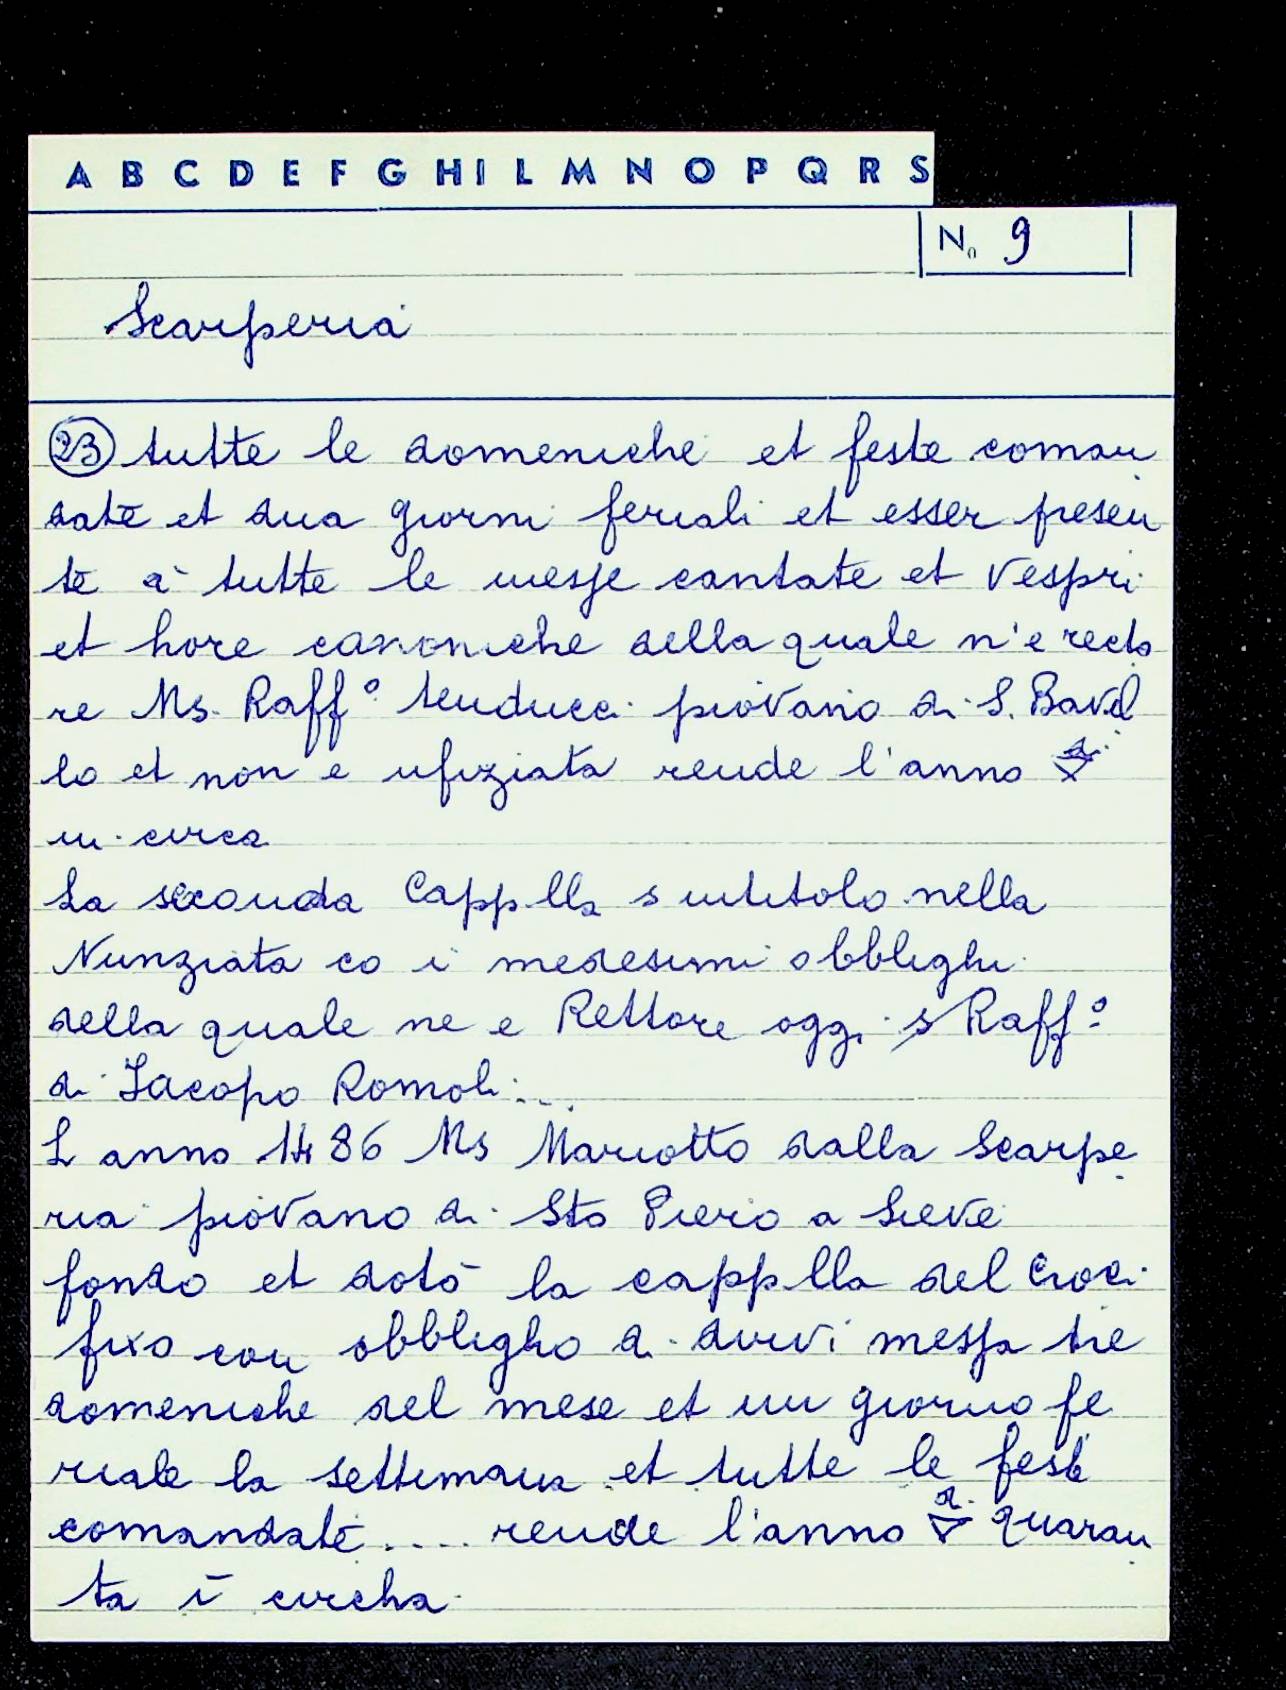 A B C D E F G H I L M N O P Q R S
N. 9
Scarperia
23 tutte le domeniche et feste coman
date et dua giorni feriali et esser presen
te à tutte le messe cantate et Vespri
et hore canoniche della quale n'e recto
re Ms. Raff° piovano di S. Bavel
lo et non e ufiziata rende l'anno
in circa
La seconda Cappella s intitolo nella
Nunziata co i medesimi obblighi
della quale ne e Rettore oggi s Raff°
di Jacopo Romoli ...
L anno 1486 Ms Mariotto dalla Scarpe
ria piovano di Sto Piero a Sieve
fondo et dotò la cappella del Croci
fixo con obbligho di dirvi messa tre
domeniche del mese et un giorno fe
riale la settimana et tutte le feste
comandate .... rende l'anno quaran
ta i circha